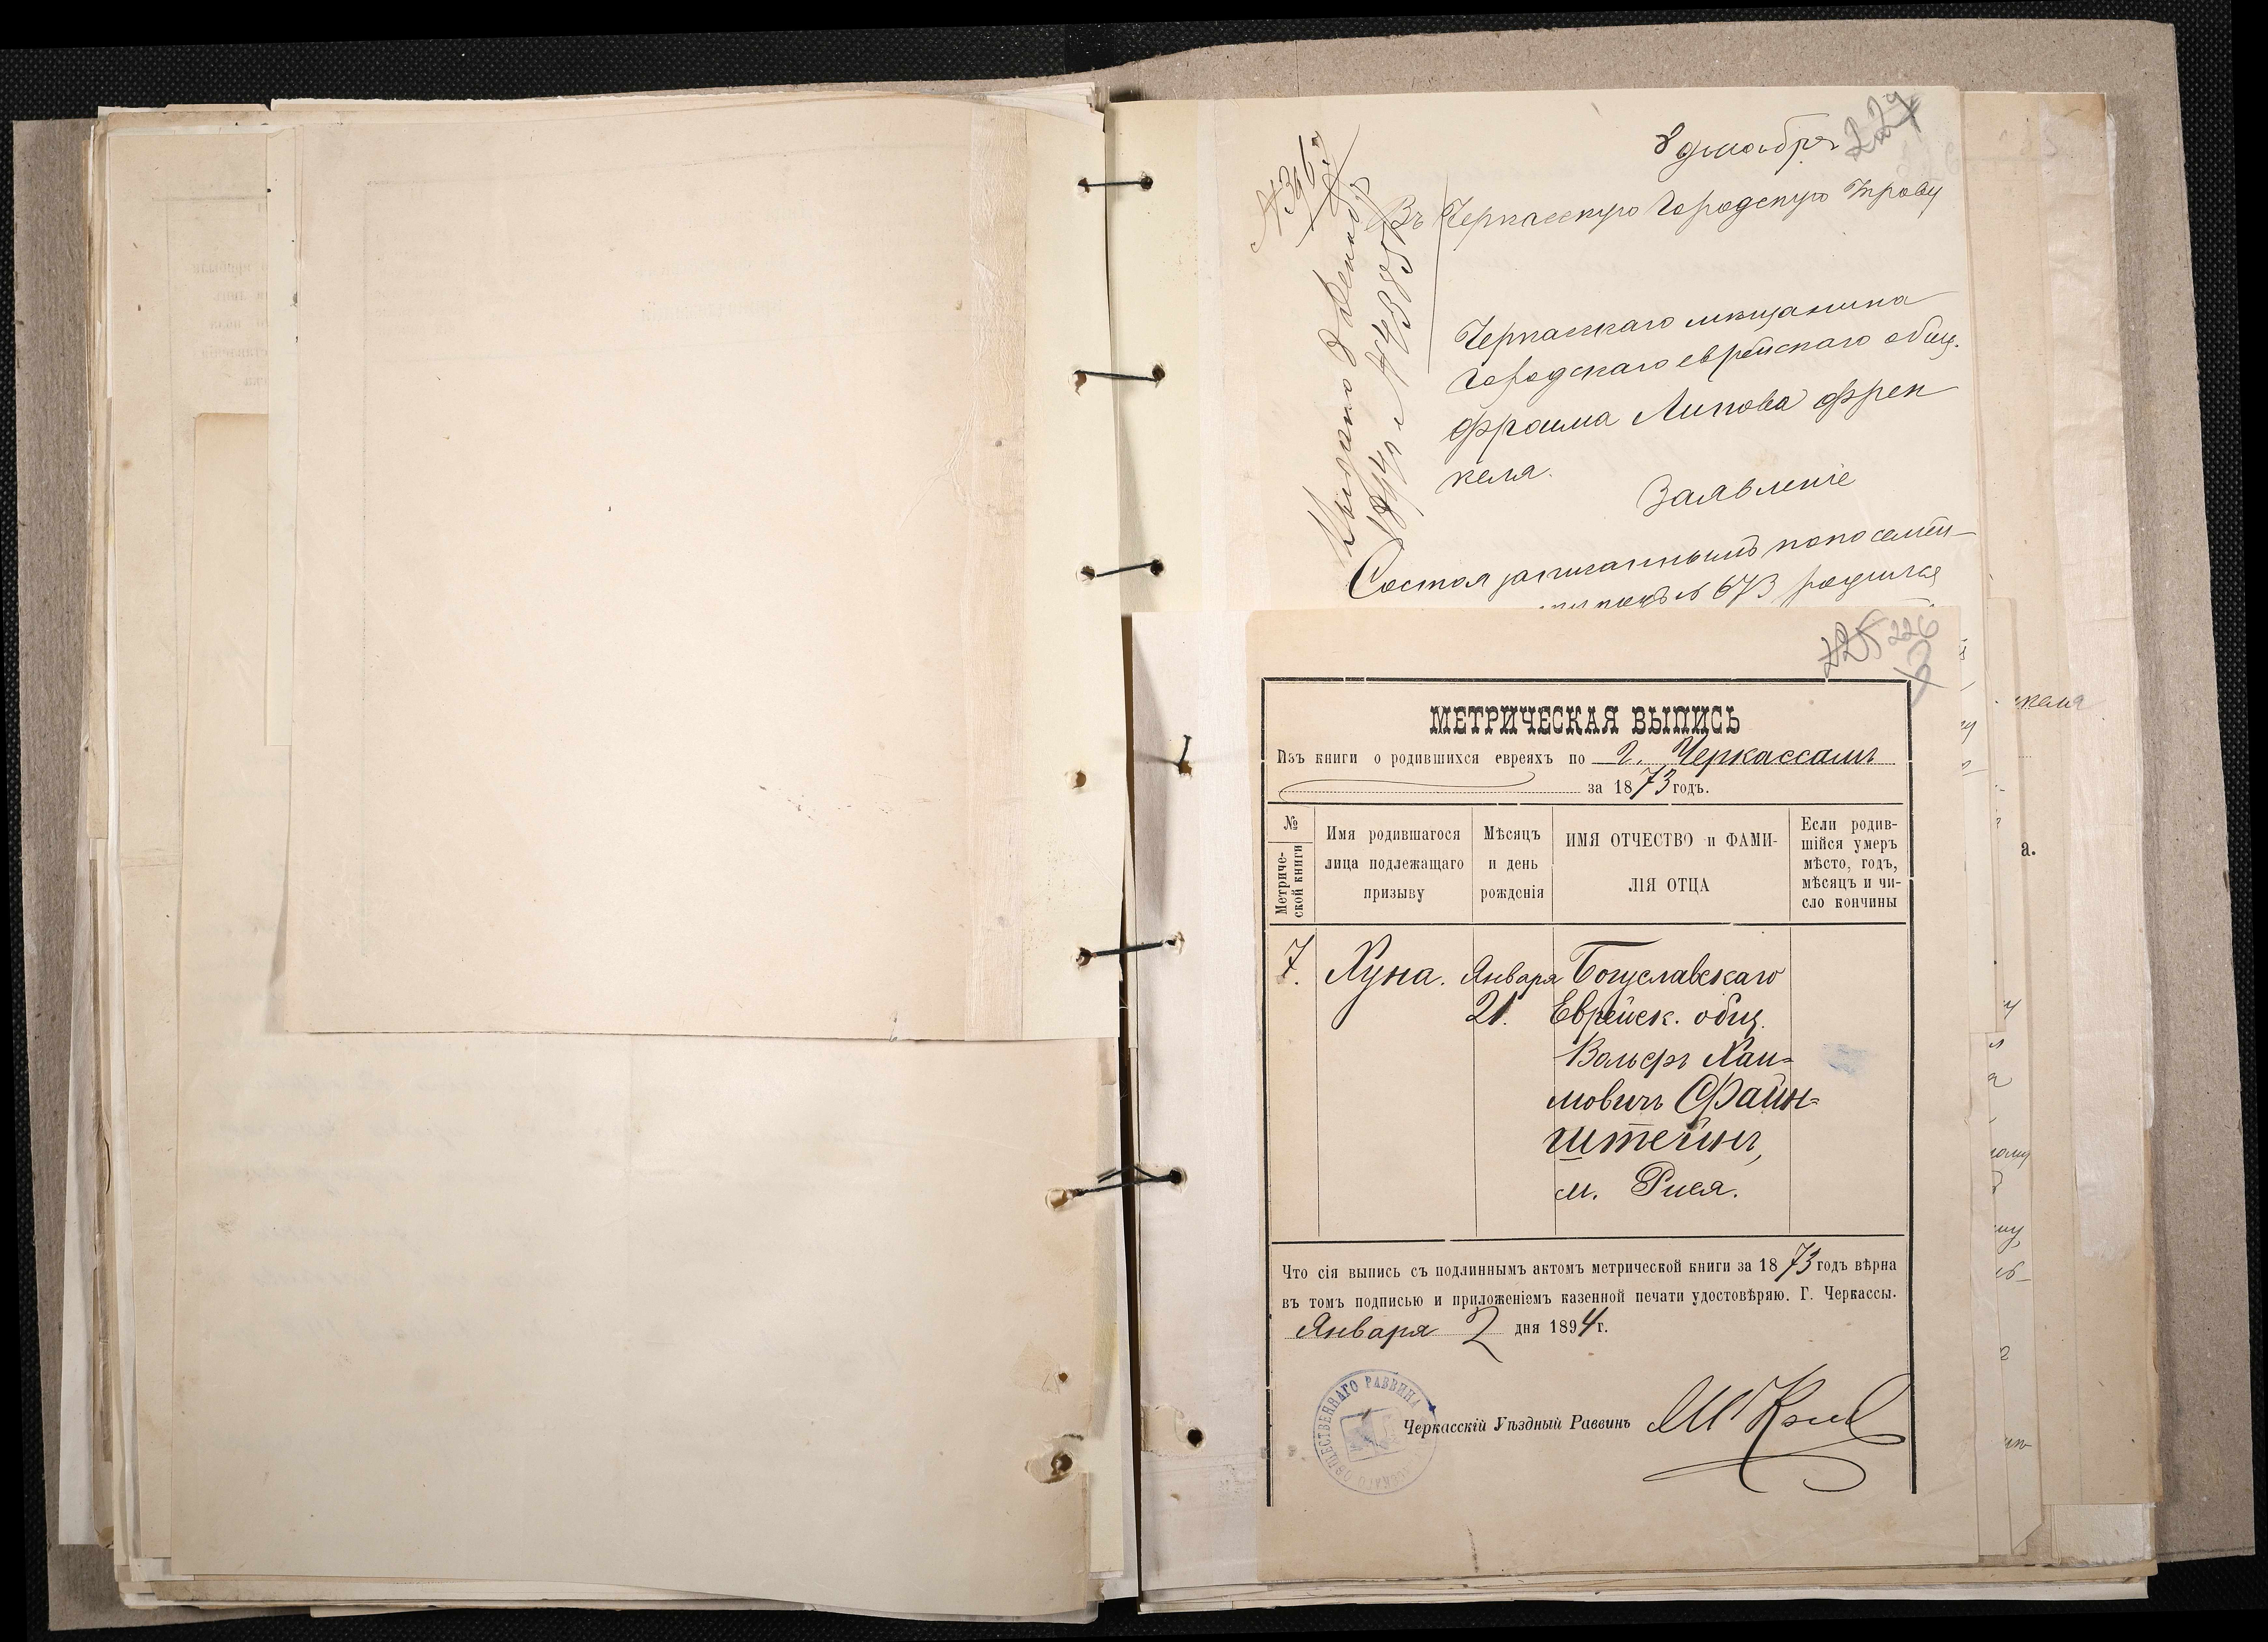 8 декабря
Въ Черкасскую Городскую Управу
Черкасскаго мещанина
Городскаго еврейскаго общ.
Фроима Липова Френ
келя.
Заявленіе
Состоя записаннымъ по посемей-
№ 673
225 226
МЕТРИЧЕСКАЯ ВЫПИСЬ
Изъ книги о родившихся евреяхъ по г. Черкассамъ
за 1873 годъ.
№ Метриче-
ской книги
Имя родившагося
лица подлежащаго
призыву
Мѣсяцъ
и день
рожденія
ИМЯ ОТЧЕСТВО и ФАМИ-
ЛІЯ ОТЦА
Если родив-
шійся умеръ
мѣсто, годъ,
мѣсяцъ и чи-
сло кончины
7. Хуна. Января
21.
Богуславскаго
Еврейск. общ.
Вольфъ Хаи-
мовичъ Файн-
штейнъ,
м. Рися.
Что сія выпись съ подлиннымъ актомъ метрической книги за 1873 годъ вѣрна
въ томъ подписью и приложеніемъ казенной печати удостовѣряю. Г. Черкассы.
Января 2 дня 1894 г.
ОБЩЕСТВЕННАГО РАВВИНА
Черкасскій Уѣздный Раввинъ
келя
а.